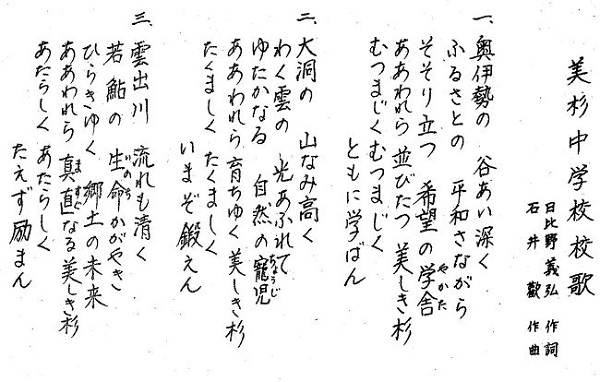 美杉中学校校歌
日比野義弘 作詞
石井 歡 作曲
一、奥伊勢の 谷あい深く
ふるさとの 平和さながら
そそり立つ 希望の学舎
やかた
ああわれら 並びたつ 美しき杉
むつまじくむつまじく
ともに学ばん
二、大洞の 山なみ高く
わく雲の 光あふれて
ゆたかなる 自然の寵児
ちょうじ
ああわれら 育ちゆく 美しき杉
たくましく たくましく
いまぞ鍛えん
三、雲出川 流れも清く
若鮎の 生命かがやき
いのち
ひらきゆく 郷土の未来
ああわれら 真直なる美しき杉
ますぐ
あたらしく あたらしく
たえず励まん